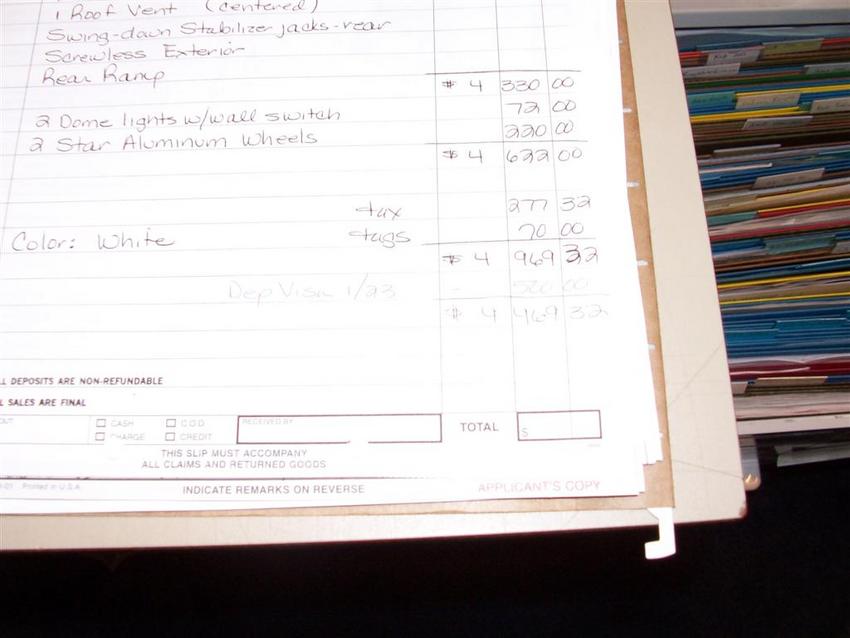 1 Roof Vent (centered)
Swing-down Stabilizer jacks-rear
Screwless Exterior
Rear Ramp
$ 4 330 00
72 00
2 Dome lights w/wall switch
220 00
2 Star Aluminum Wheels
$ 4 622 00
tax 277 32
Color: White tags 70 00
$ 4 969 32
Dep Visa 1/23 - 500 00
$ 4 469 32
LL DEPOSITS ARE NON-REFUNDABLE
L SALES ARE FINAL
OUT CASH C O D RECEIVED BY TOTAL $
CHARGE CREDIT
THIS SLIP MUST ACCOMPANY
ALL CLAIMS AND RETURNED GOODS
Printed in U.S.A. INDICATE REMARKS ON REVERSE APPLICANT'S COPY